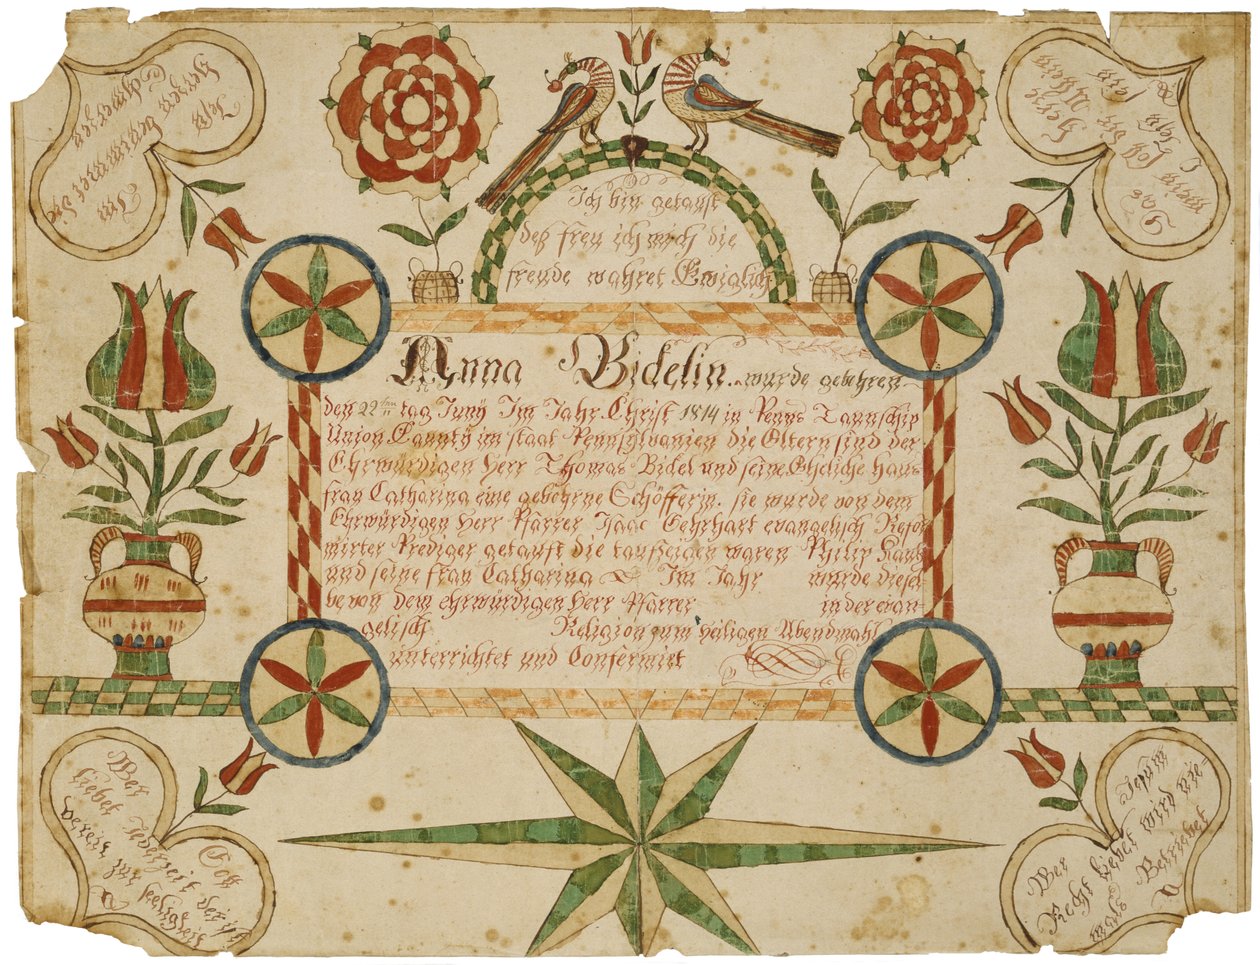 Ich bin getauft
deß freu ich mich die
freude wahret Ewiglich
Anna Bidelin wurde gebohren
den 22ten tag Junÿ Im Jahr Christ 1814 in Penns Taunschip
Union Caunty im staat Pennsylvanien die Eltern sind der
Ehrwürdigen Herr Thomas Bidel und seine Eheliche haus
frau Catharina eine gebohrne Schöfferin. sie wurde von dem
Ehrwürdigen Herr Pfarrer Isaac Gehrhart evangelisch Refor
mirter Prediger getauft die taufzeigen waren Philip Kaub
und seine frau Catharina Im Jahr wurde diesel
be von dem ehrwürdigen Herr Pfarrer in der evan
gelisch Religion zum heiligen Abendmahl
unterrichtet und Confermirt
Jesu
Herzen
Schmerzen
Jesu
Wer
liebet Jederzeit der ist
bereit zur seligkeit
Gott
Wer Jesum
Recht liebet wird nie
mals Betrübet